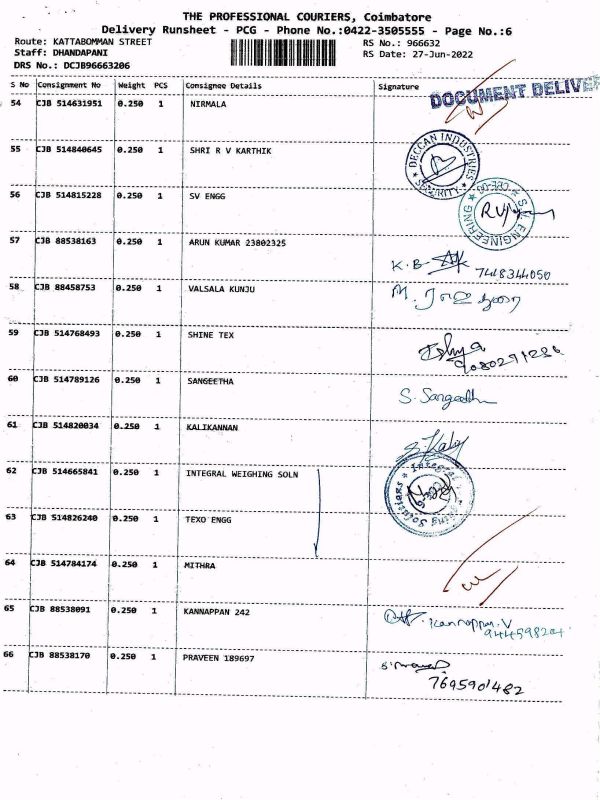 THE PROFESSIONAL COURIERS, Coimbatore
Delivery Runsheet - PCG - Phone No.:0422-3505555 - Page No.:6
Route: KATTABOMMAN STREET RS No.: 966632
Staff: DHANDAPANI RS Date: 27-Jun-2022
DRS No.: DCJB96663206
S No Consignment No Weight PCS Consignee Details Signature
DOCUMENT DELIVE
54 CJB 514631951 0.250 1 NIRMALA
55 CJB 514840645 0.250 1 SHRI R V KARTHIK
DECCAN INDUSTRIES
SECURITY
56 CJB 514815228 0.250 1 SV ENGG
ENGINEERING
57 CJB 88538163 0.250 1 ARUN KUMAR 23802325
K.B 7448344050
58 CJB 88458753 0.250 1 VALSALA KUNJU
59 CJB 514768493 0.250 1 SHINE TEX
9080291286
60 CJB 514789126 0.250 1 SANGEETHA S. Sangeetha
61 CJB 514820034 0.250 1 KALIKANNAN
62 CJB 514665841 0.250 1 INTEGRAL WEIGHING SOLN
Integral Weighing Solutions
63 CJB 514826240 0.250 1 TEXO ENGG
64 CJB 514784174 0.250 1 MITHRA
65 CJB 88538091 0.250 1 KANNAPPAN 242 Kannappan.V
66 CJB 88538170 0.250 1 PRAVEEN 189697
7695901482